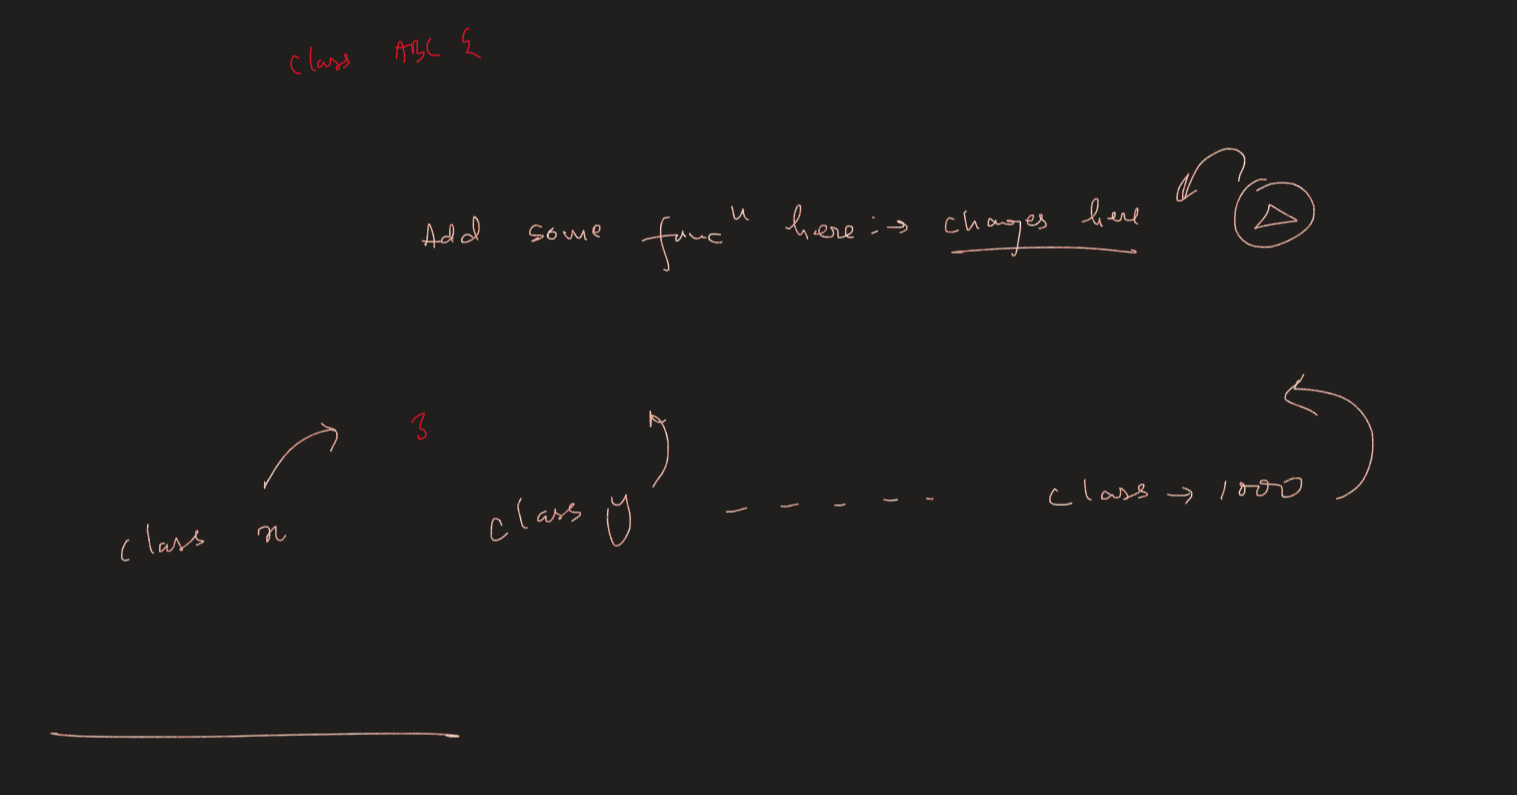 class ABC {
Add some funcⁿ here :→ changes here
}
class x class y - - - - - class → 1000